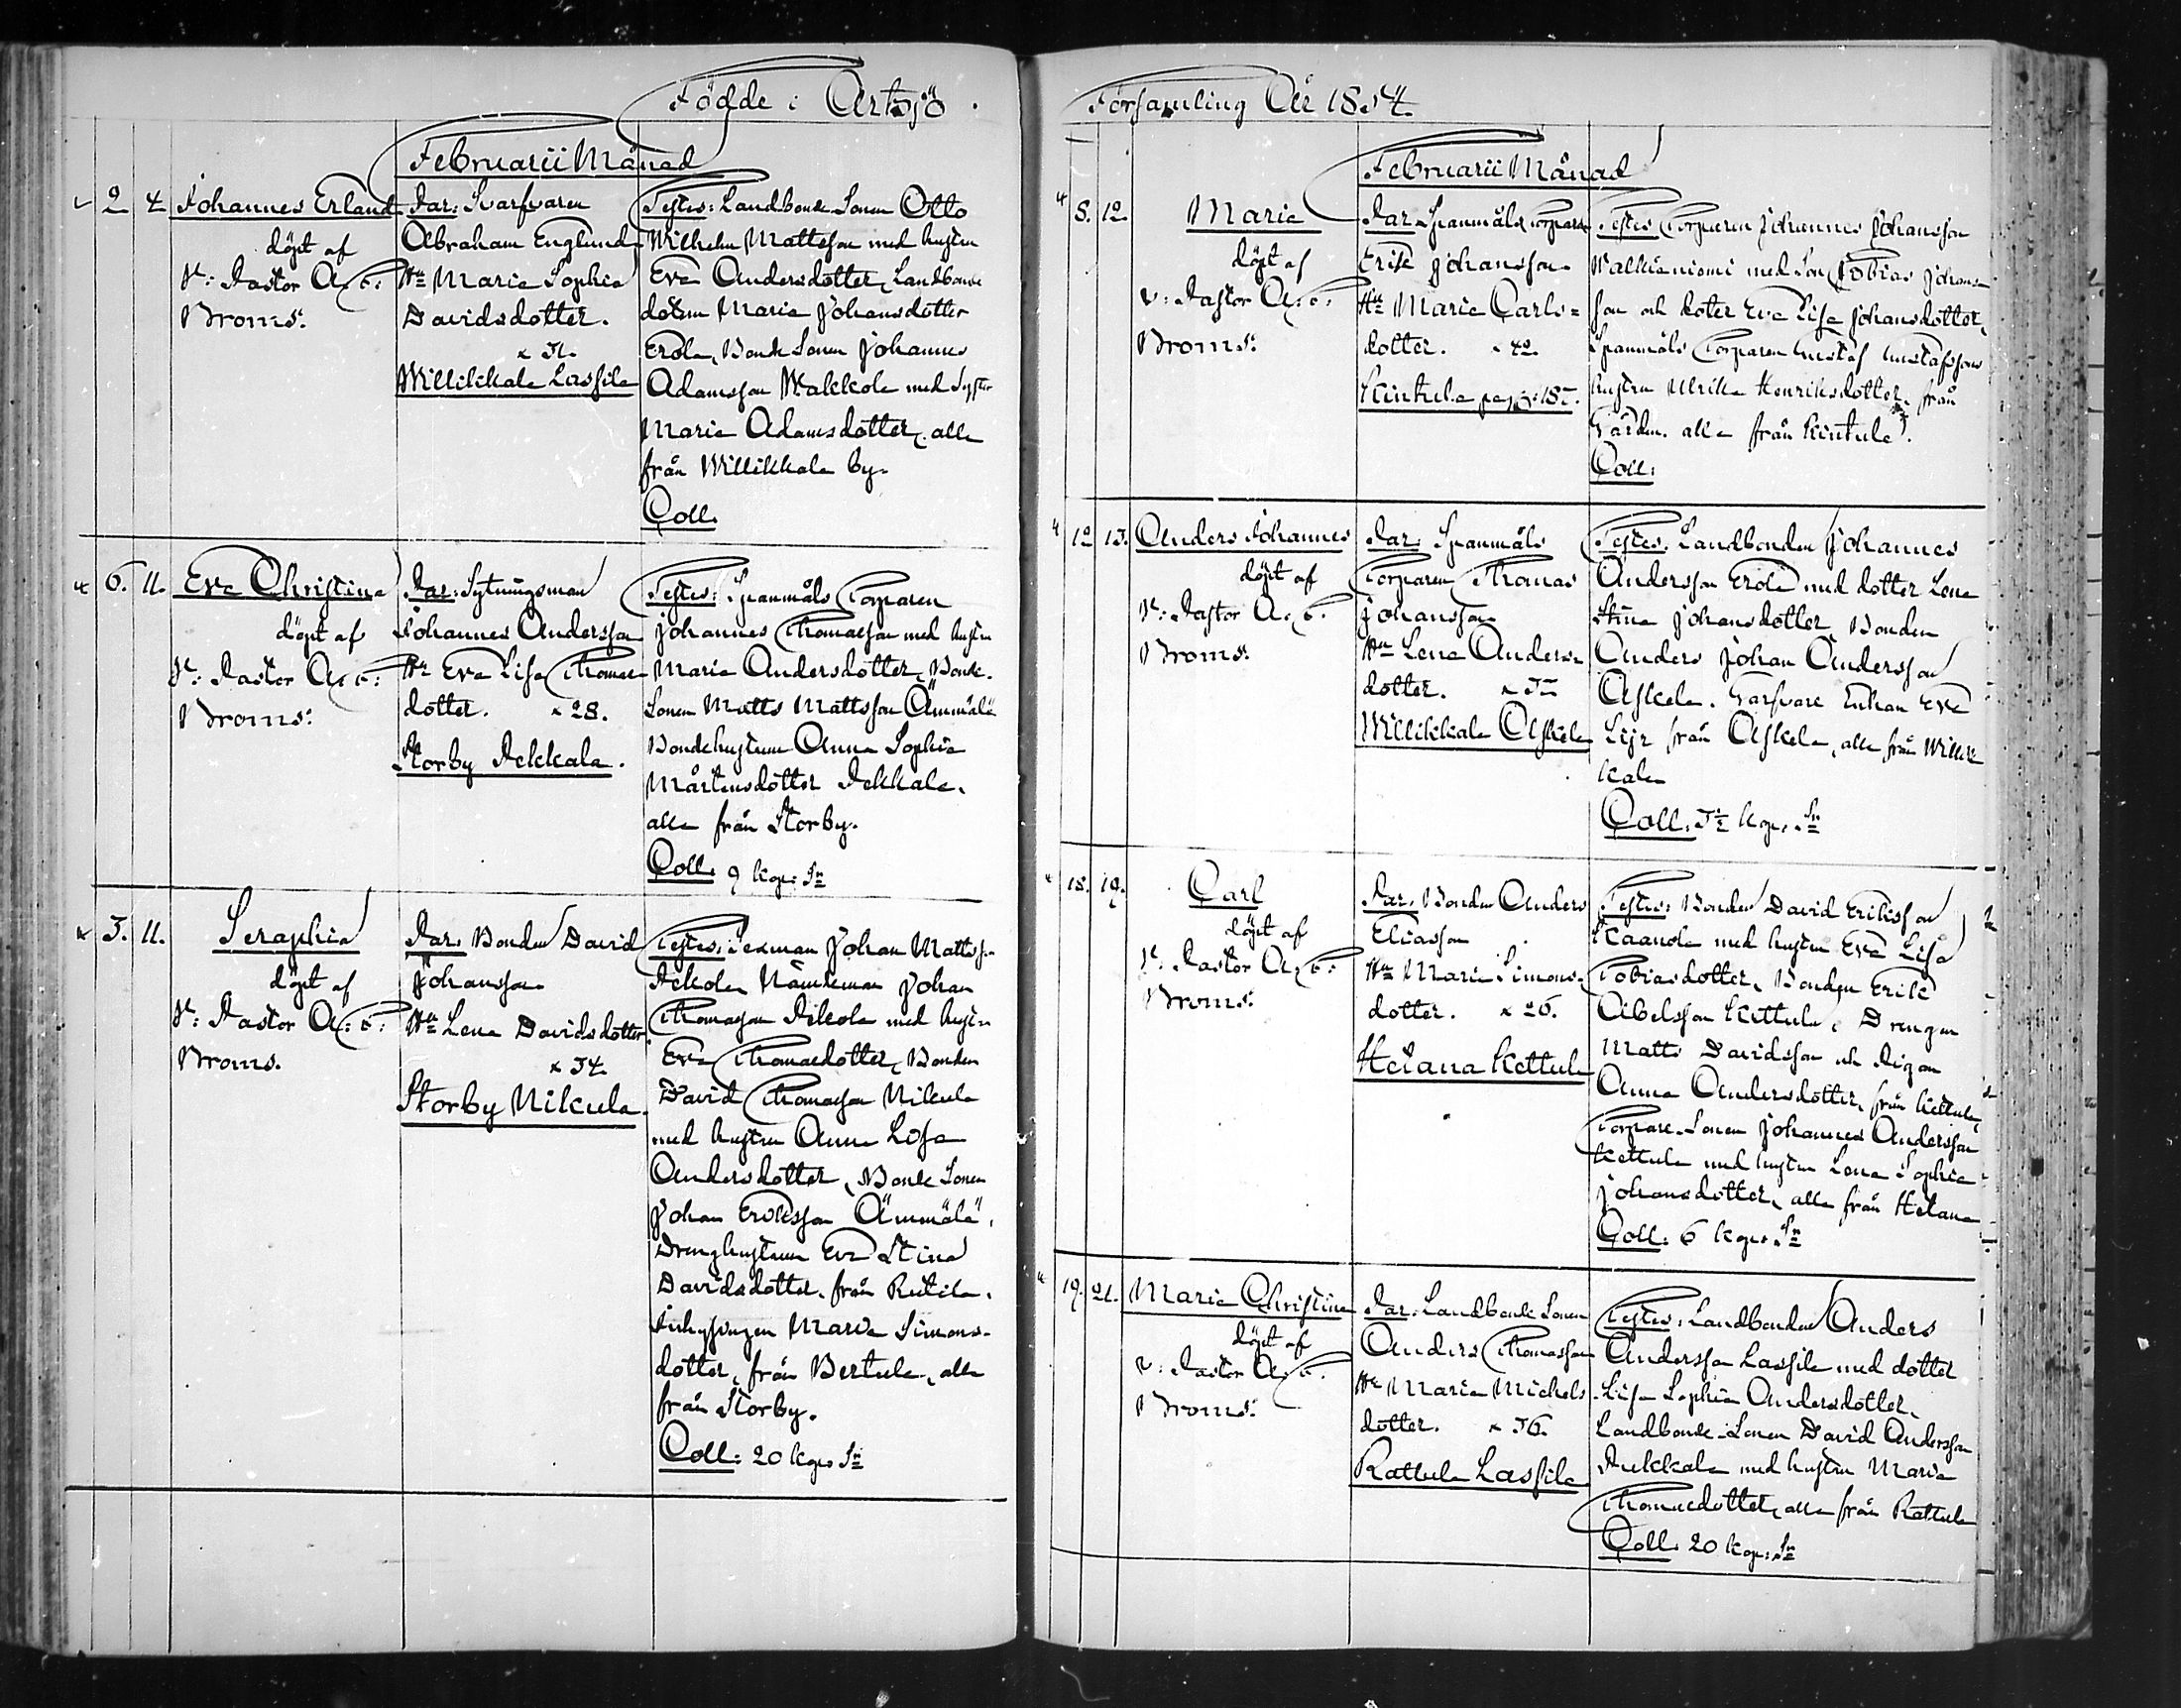 Födde i Artsjö
Februarii Månad
2 4 Johannes Erland
döpt af
V: Pastor A. F.
Broms.
Par: Svarfvaren
Abraham Englund
Hu Maria Sophia
Davidsdotter.
Willikkala Lassila
Testes: Landbonde Sonen Otto
Wilhelm Mattsson med hustru
Eva Andersdotter, Landbonde
dottern Maria Johansdotter
Erola, Bonde Sonen Johannes
Adamsson Wakkola med Syster
Maria Adamsdotter. alla
från Willikkala by.
Coll.
6. 11. Eva Christina
döpt af
V: Pastor A. F.
Broms.
Par: Sytningsman
Johannes Andersson
Hu Eva Lisa Thomae
dotter. x 28.
Storby Pekkala.
Testes: Spanmåls Torparen
Johannes Thomasson med hustru
Maria Andersdotter, Bonde
Sonen Matts Mattsson Ämmälä
Bondehustrun Anna Sophia
Mårtensdotter Pekkala.
alla från Storby.
Coll. 9 kop: Sr
3. 11. Seraphia
döpt af
V: Pastor A. F.
Broms.
Par: Bonden David
Johansson
Hu Lena Davidsdotter
x 34
Storby Nikula.
Testes: Sexman Johan Mattss:
Pekola Nämdeman Johan
Thomasson Pekola med hustru
Eva Thomaedotter, Bonden
David Thomasson Nikula
med hustru Anna Lisa
Andersdotter, Bonde Sonen
Johan Eriksson Ämmälä,
Drenghustrun Eva Stina
Davidsdotter, från Rutila,
Maria Simons-
dotter, från Bertula, alla
från Storby.
Coll: 20 kop. Sr
Församling År 1854.
Februarii Månad
8. 12. Maria
döpt af
V: Pastor A. F.
Broms.
Par: Spanmåls Torparen
Erik Johansson
Hu Maria Carls=
dotter. x 42.
Kintula pag: 185.
Testes: Torparen Johannes Johansson
Walkianiomi med Son Tobias Johans-
son och doter Eva Lisa Johansdotter,
Spanmåls Torparen Gustaf Gustafssons
hustru Ulrika Henriksdotter, från
alla från Kintula.
Coll:
12 13. Anders Johannes
döpt af
V: Pastor A. F.
Broms.
Par: Spanmåls
Torparen Thomas
Johansson
Hu Lena Anders-
dotter.
Willikkala Askela
Testes: Landbonden Johannes
Andersson Erola med dotter Lena
Stina Johansdotter, Bonden
Anders Johan Andersson
Askela. Garfvare Enkan Eva
Lisa från Askela, alla från Willik
kala
Coll. kop. Sr
18. 19. Carl
döpt af
V: Pastor A. F.
Broms.
Par: Bonden Anders
Eliasson
Hu Maria Simons-
dotter. x 26.
Heiana Kettula
Testes: Bonden David Eriksson
Kaanola med hustru Eva Lisa
Tobiasdotter, Bonden Erik
Abelsson Kettula, Drengen
Matts Davidsson och Pigan
Anna Andersdotter, från Kettula,
Torpare Sonen Johannes Andersson
Kettula med hustru Lena Sophia
Johansdotter, alla från Heiana
Coll: 6 kop. Sr
19. 21. Maria Christina
döpt af
V: Pastor A. F.
Broms.
Par: Landbonde Sonen
Anders Thomasson
Hu Maria Michels
dotter. x 36.
Rattula Lassila
Testes: Landbonden Anders
Andersson Lassila med dotter
Lisa Sophia Andersdotter,
Landbonde Sonen David Andersson
Pukkala med hustru Maria
Thomaedotter, alla från Rattula
Coll: 20 kop: Sr